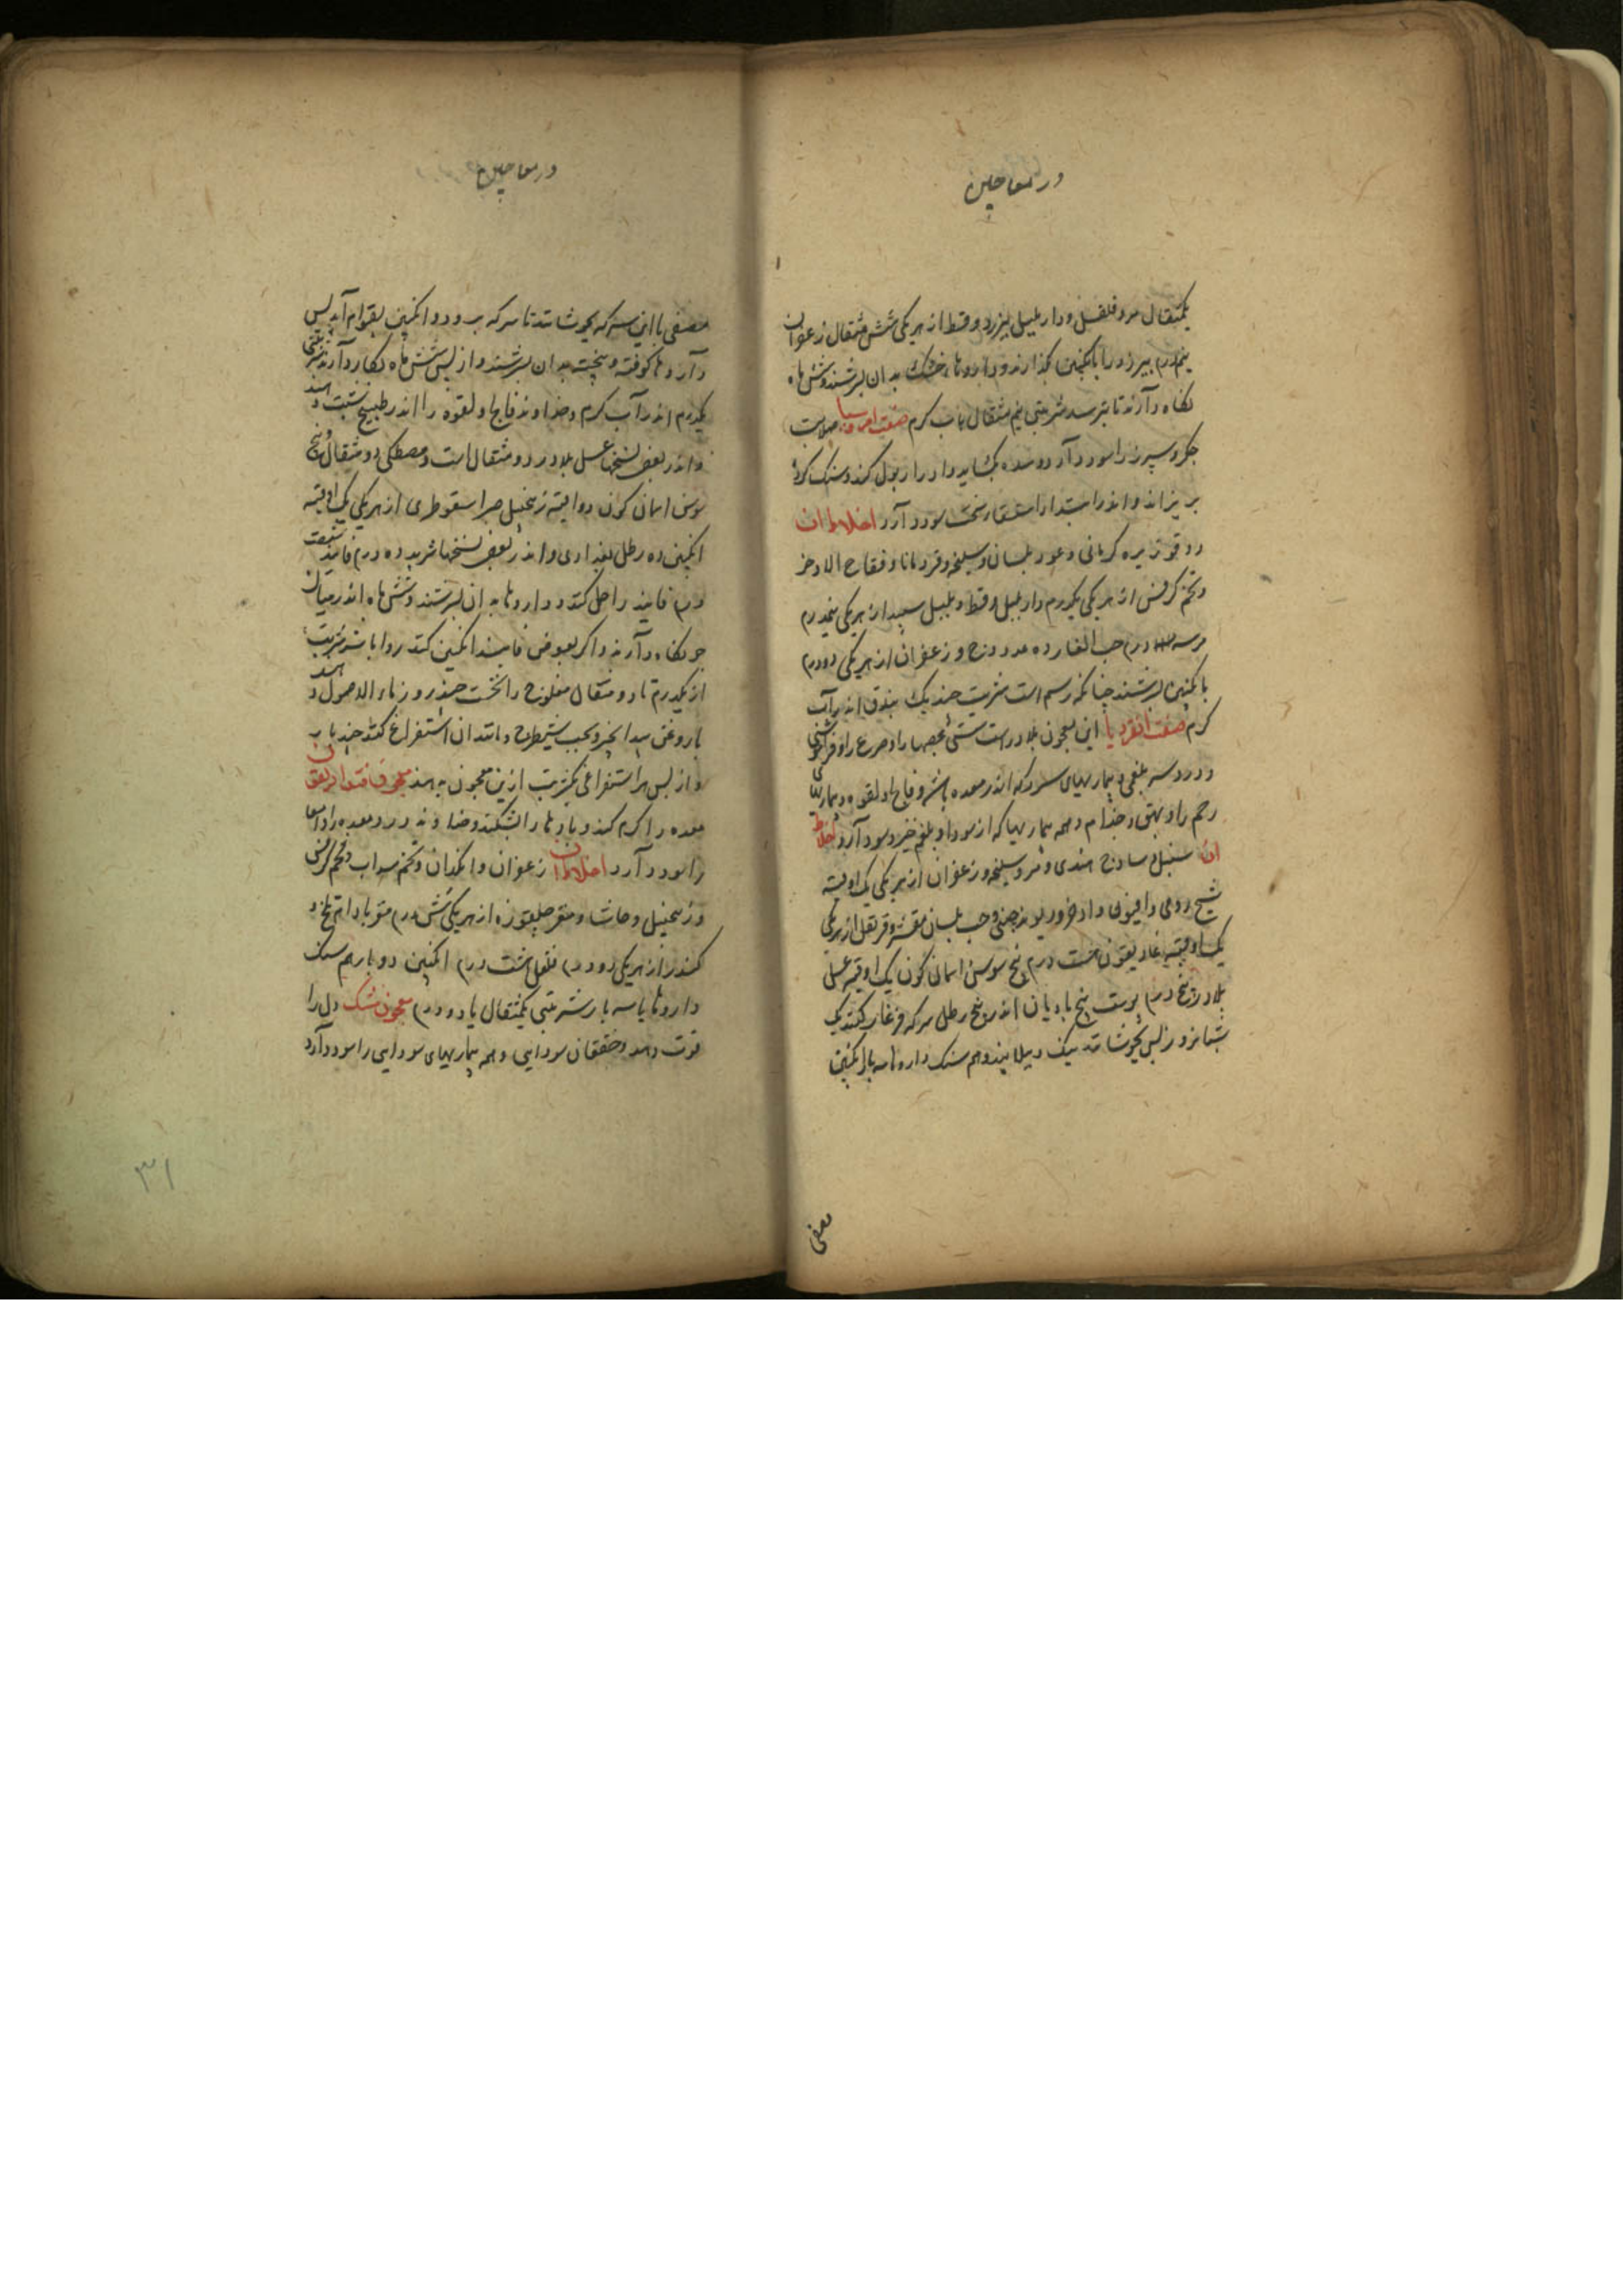 در معاجین
یکمثقال مر و فلفل و دار بلبل بیرزد و قسط از هر یکی شش مثقال زعفران
پنج درم بیرزد را بانگبین بگذارند و داروهاء خشک بدان بسرشند و شش ماه
نگاه دارند تا برسد شربتی نیم مثقال بآب گرم صفت امروسیا صلابت
جگر و سپرز را سود دارد و سده بگشاید و ادرار بول کند و سنگ گرده
بریزاند و اندر ابتداء استسقا سخت سود دارد اخلاط آن
دوقو زیره کرمانی و عود بلسان و سلیخه و قردمانا و فقاح الاذخر
و تخم کرفس از هر یکی یکدرم دار بلبل و قسط و بلبل سپید از هر یکی پنجدرم
مر سه درم حب الغار ده عدد وج و زعفران از هر یکی دو درم
بانگبین بسرشند چنانکه رسم است شربت چند یک بندق اندر آب
گرم صفت انقردیا این معجون بلادر است سستی عصبها را و صرع را و فراموشی
و درد سر بلغمی و بیماریهای سرد که اندر معده باشد و فالج و لقوه و بیماریهای
رحم را و بهق و جذام و همه بیماریها که از سودا و بلغم خیزد سود دارد اخلاط
آن سنبل ساذج هندی و مر و سلیخه و زعفران از هر یکی یک اوقیه
شیح رومی و افیون و اذخر و ریوند چینی و حب بلسان مقشر و قرنفل از هر یکی
یک اوقیه غاریقون هشت درم بیخ سوسن آسمان گون یک اوقیه عسل
بلادر پنج درم پوست بیخ بادیان اندر پنج رطل سرکه فرغار کنند یک
شبانروز پس بجوشانند نیک و بپالایند و هم سنگ داروها سه بار انگبین
مصفی
در معاجین
مصفی با این سرکه بجوشانند تا سرکه برود و انگبین بقوام آید پس
داروها کوفته و بیخته بدان بسرشند و از پس شش ماه بکار دارند شربتی
یکدرم اندر آب گرم و خداوند فالج و لقوه را اندر طبیخ شبت دهند
و اندر بعضی نسختها عسل بلادر دو مثقال است و مصطکی دو مثقال و بیخ
سوسن آسمان گون دو اوقیه زنجبیل صبر اسقوطری از هر یکی یک اوقیه
انگبین ده رطل بغدادی و اندر بعضی نسختها تربد ده درم فانید شصت
درم فانید را حل کنند و داروها بدان بسرشند و شش ماه اندر میان
جو نگاه دارند و اگر بعوض فانید انگبین کنند روا باشد شربت
از یکدرم تا دو مثقال مفلوج را نخست چند روز ماء الاصول دهند
با روغن بیدانجیر و بحب شیطرج و مانند آن استفراغ کنند چند بار
و از پس هر استفراغی یکشربت ازین معجون بدهند معجون قنداریقون
معده را گرم کند و بادها را بشکند و خداوند درد معده را و امعا
را سود دارد اخلاط آن زعفران و انگدان و تخم سداب و تخم کرفس
و زنجبیل و حاشا و مغز جلغوزه از هر یکی شش درم مغز بادام تلخ و
کندر از هر یکی دو درم فلفل هشت درم انگبین دو بار هم سنگ
داروها یا سه بار شربتی یکمثقال یا دو درم معجون مشک دل را
قوت دهد و خفقان سودایی و همه بیماریهای سودایی را سود دارد
۳۱